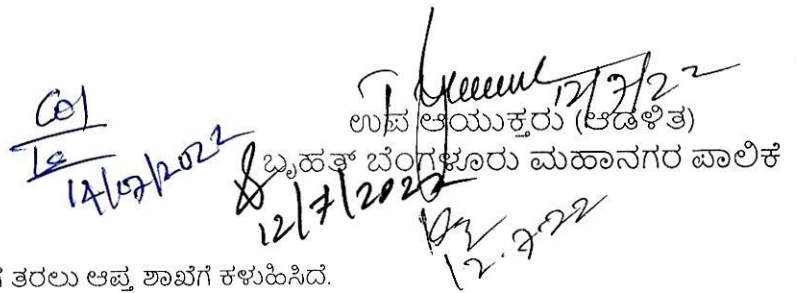 12/7/22
ಉಪ ಆಯುಕ್ತರು (ಆಡಳಿತ)
ಬೃಹತ್ ಬೆಂಗಳೂರು ಮಹಾನಗರ ಪಾಲಿಕೆ
14/07/2022
12/7/2022
12.7.22
ತರಲು ಆಪ್ತ ಶಾಖೆಗೆ ಕಳುಹಿಸಿದೆ.